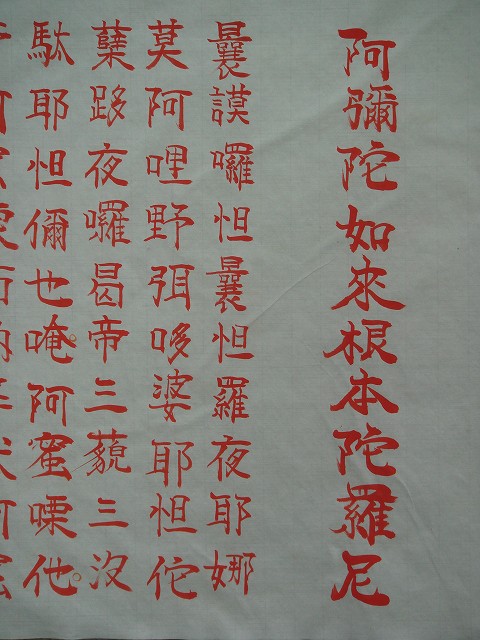 阿彌陀如來根本陀羅尼
曩謨囉怛曩怛羅夜耶娜
莫阿哩野弭哆婆耶怛佗
蘖跢夜囉曷帝三藐三沒
駄耶怛儞也唵。阿蜜㗚他。